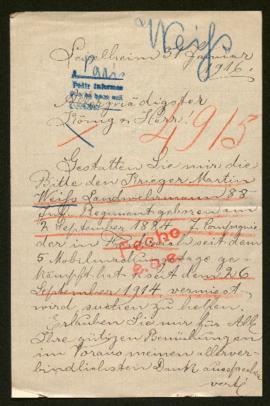 Weiß
31 Januar
1916.
Allergnädigster
König u Herr!
4915
Gestatten Sie mir die
Bitte den Krieger Martin
Weiß Landwehrmann 83
Inf. Regiment geboren am
2 September 1884 7. Compagnie
der in seit dem
5 Mobilmachungstage ge-
kämpft hat u seit dem 26
September 1914 vermisst
wird suchen zu lassen.
Erlauben Sie mir für Alle
Ihre gütigen Bemühungen
im Voraus meinen allerver-
bindlichsten Dank